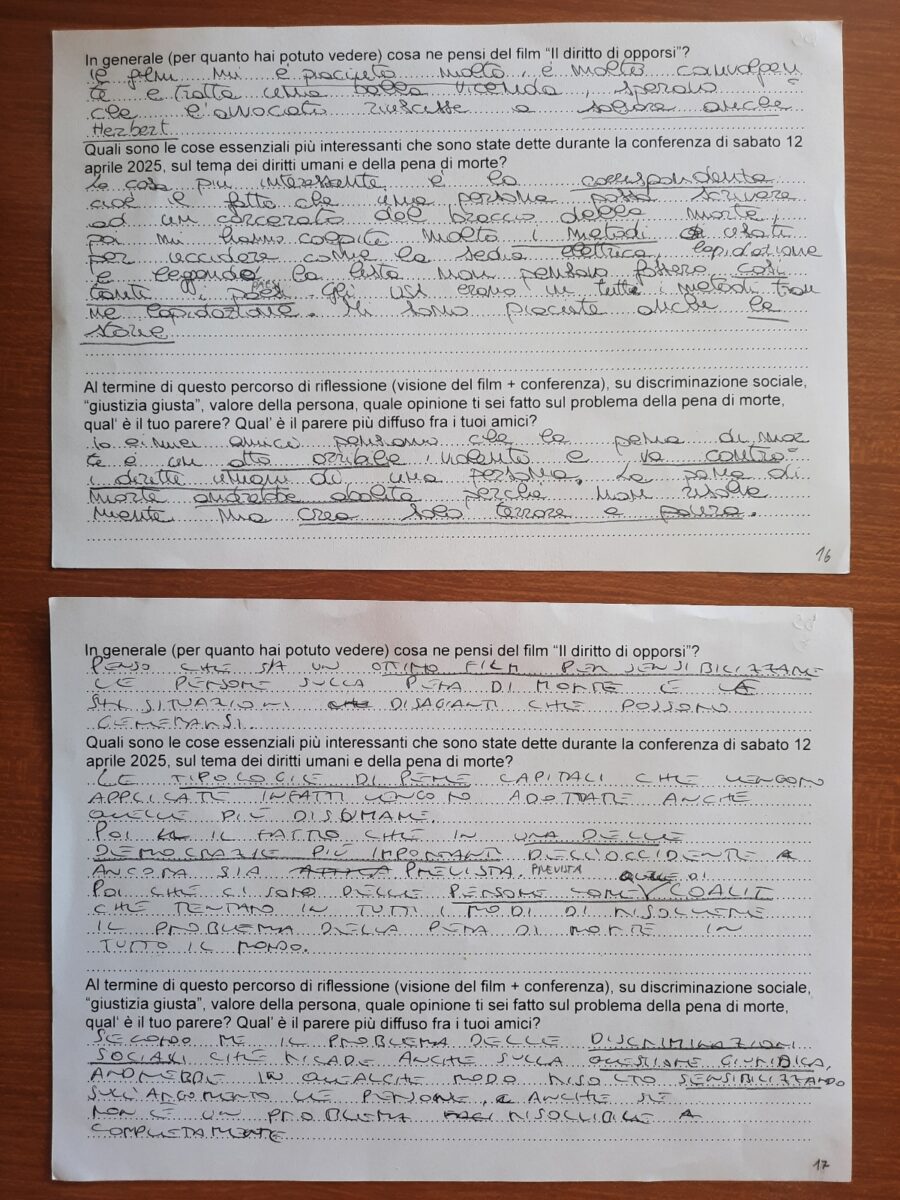 In generale (per quanto hai potuto vedere) cosa ne pensi del film “Il diritto di opporsi”?
Il film mi è piaciuto molto, è molto coinvolgen
te e tratta una bella vicenda, speravo
che l'avvocato riuscisse a salvare anche
Herbert
Quali sono le cose essenziali più interessanti che sono state dette durante la conferenza di sabato 12
aprile 2025, sul tema dei diritti umani e della pena di morte?
La cosa più interessante è la corrispondenza
cioè il fatto che una persona possa scrivere
ad un carcerato del braccio della morte,
poi mi hanno colpito molto i metodi usati
per uccidere come la sedia elettrica, lapidazione
e leggendo la lista non pensavo fossero così
tanti i paesi. Gli USA erano in tutti i metodi tran
ne lapidazione. Mi sono piaciute anche le
storie
Al termine di questo percorso di riflessione (visione del film + conferenza), su discriminazione sociale,
“giustizia giusta”, valore della persona, quale opinione ti sei fatto sul problema della pena di morte,
qual‘ è il tuo parere? Qual‘ è il parere più diffuso fra i tuoi amici?
Io e i miei amici pensiamo che la pena di mor
te è un atto orribile, violento e va contro
i diritti umani di una persona. La pena di
morte andrebbe abolita perché non risolve
niente ma crea solo terrore e paura.
16
In generale (per quanto hai potuto vedere) cosa ne pensi del film “Il diritto di opporsi”?
PENSO CHE SIA UN OTTIMO FILM PER SENSIBILIZZARE
LE PERSONE SULLA PENA DI MORTE E LE
SITUAZIONI DISAGIANTI CHE POSSONO
GENERARSI.
Quali sono le cose essenziali più interessanti che sono state dette durante la conferenza di sabato 12
aprile 2025, sul tema dei diritti umani e della pena di morte?
LE TIPOLOGIE DI PENE CAPITALI CHE VENGON
APPLICATE INFATTI VENGONO ADOTTATE ANCHE
QUELLE PIÙ DISUMANE.
POI IL FATTO CHE IN UNA DELLE
DEMOCRAZIE PIÙ IMPORTANTI DELL'OCCIDENTE
ANCORA SIA PREVISTA. PREVISTA
POI CHE CI SONO DELLE PERSONE COME QUELLE DI COALIT
CHE TENTANO IN TUTTI I MODI DI RISOLVERE
IL PROBLEMA DELLA PENA DI MORTE IN
TUTTO IL MONDO.
Al termine di questo percorso di riflessione (visione del film + conferenza), su discriminazione sociale,
“giustizia giusta”, valore della persona, quale opinione ti sei fatto sul problema della pena di morte,
qual‘ è il tuo parere? Qual‘ è il parere più diffuso fra i tuoi amici?
SECONDO ME IL PROBLEMA DELLE DISCRIMINAZIONI
SOCIALI CHE RICADE ANCHE SULLA QUESTIONE GIURIDICA,
ANDREBBE IN QUALCHE MODO RISOLTO SENSIBILIZZANDO
SULL'ARGOMENTO LE PERSONE, ANCHE SE
NON È UN PROBLEMA RISOLVIBILE
COMPLETAMENTE
17